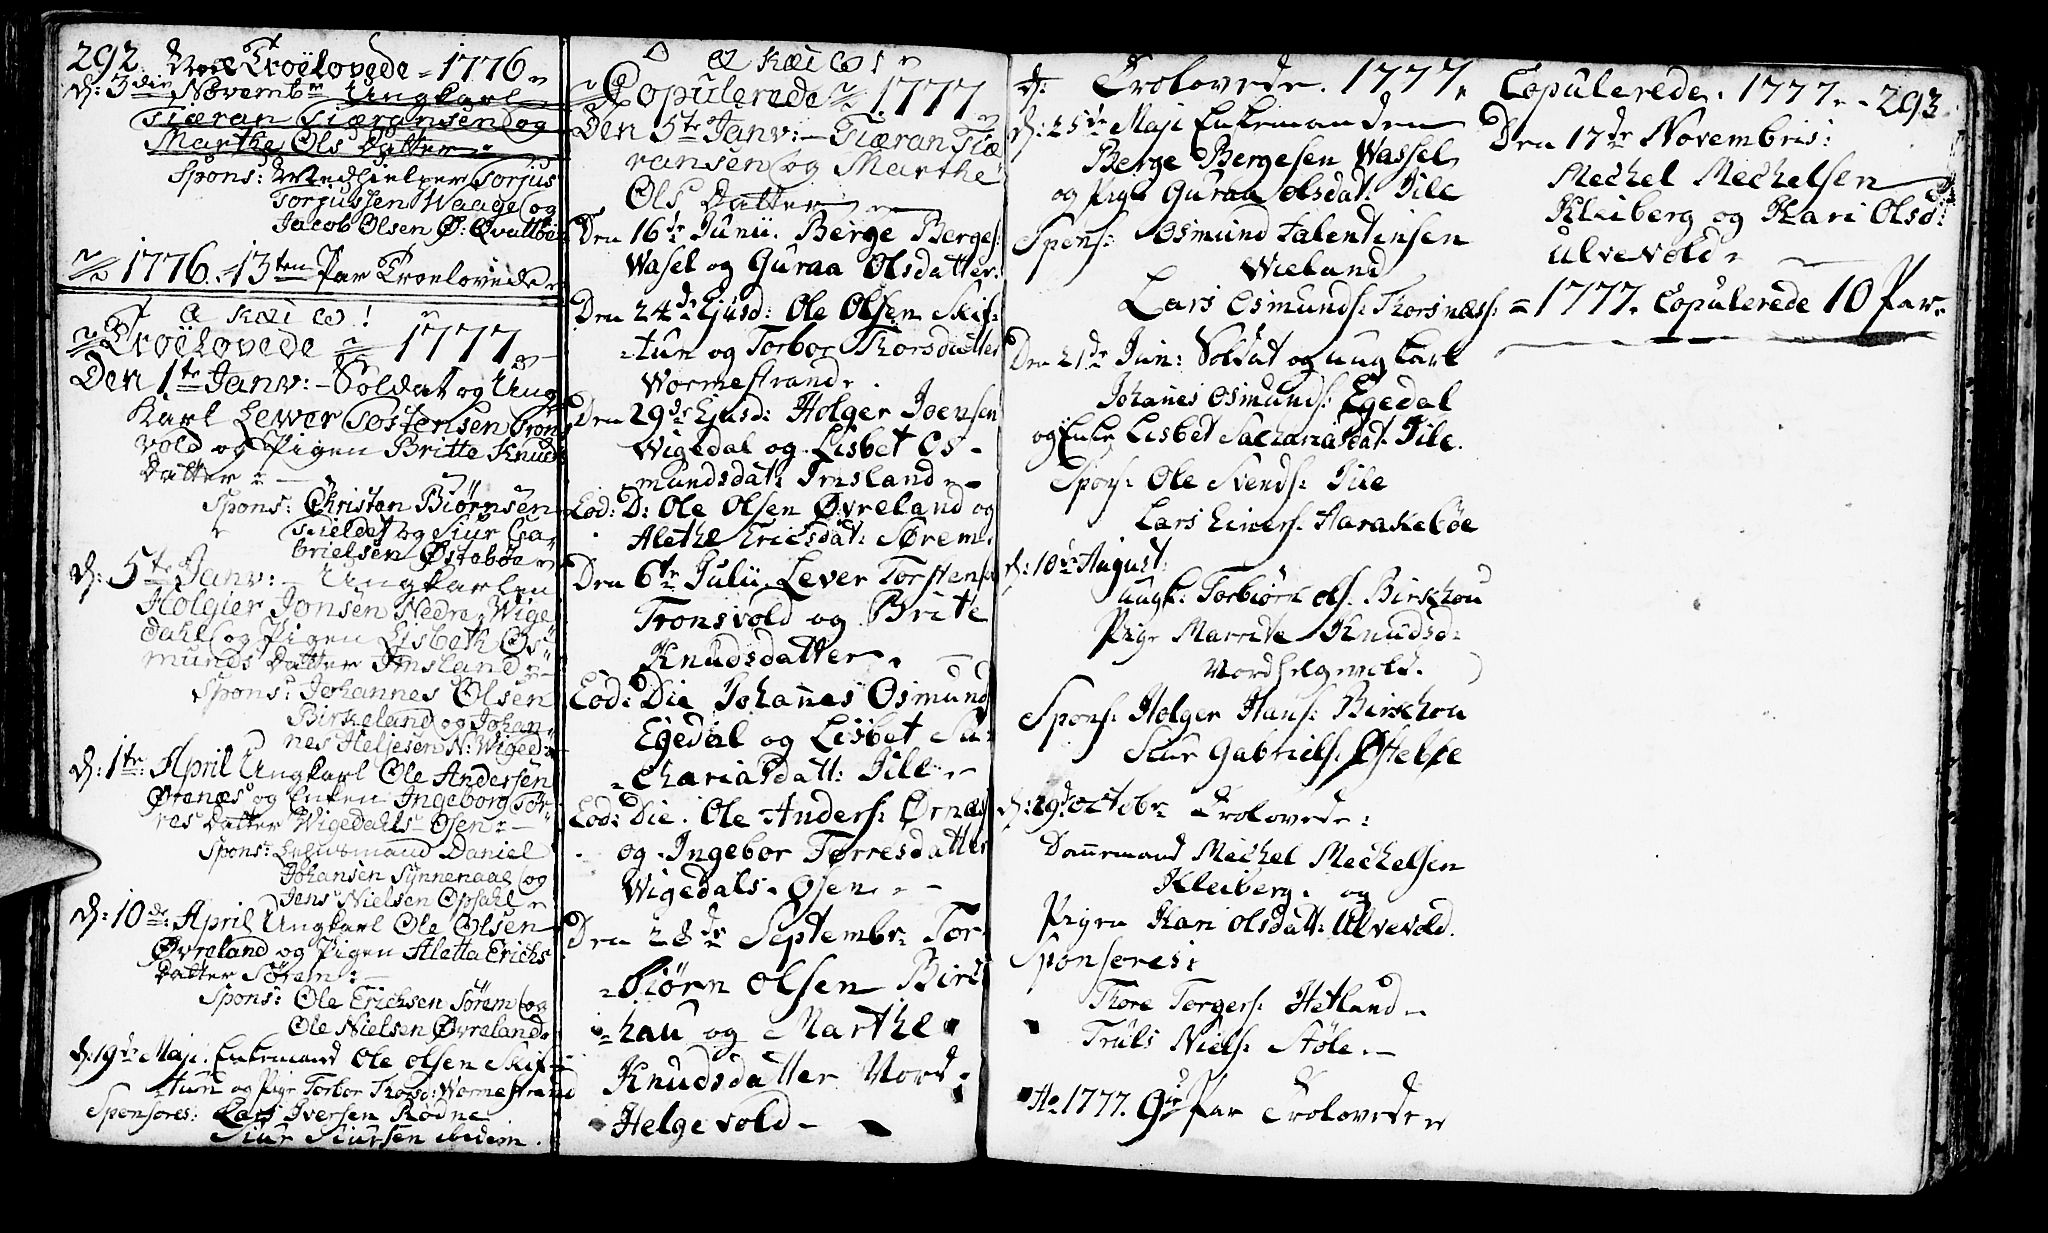 292. Troëlovede = 1776.
d: 3die Novembr Ungkarl
Tiæran Tiæransen og
Marthe Ols Datter
Spons: Medhielper Torjus
Torjussen Waage og
Jacob Olsen Ø: Qvalbøe
1776. 13ten Par Troelovede
α καὶ ω!
Troëlovede 1777.
Den 1te Janv: Soldat og Ung
Karl Lewer Tostensen Trons
vold og Pigen Britte Knuds
Datter
Spons: Christen Biørnsen
Fieldet og Siur Ga
brielsen Østebøe
d: 5te Janv: Ungkarlen
Holgier Jonsen Nedre Wige
dahl og Pigen Lisbeth Os
munds Datter Imsland
Spons: Johannes Olsen
Birkeland og Johan
nes Heljesen N: Wiged:
d: 1te April Ungkarl Ole Andersen
Ørenæs og Enken Ingeborg Tor
res Datter Wigedahls Osen
Spons: Lehnsmand Daniel
Johansen Synnenaae og
Jens Nielsen Opsahl
d: 10de April Ungkarl Ole Olsen
Øvreland og Pigen Aletta Erichs
Datter Sørem:
Spons: Ole Erichsen Sørem og
Ole Nielsen Øvreland
d: 19de Maji. Enkemand Ole Olsen Skif
tun og Pige Torbor Thorsd: Wormestrand
Sponsores: Lars Iversen Rødne
Siur Siursen ibidem.
α καὶ ω!
Copulerede 1777
Den 5te Janv: Tiæran Tiæ
ransen og Marthe
Ols Datter
Den 16de Junii. Berge Berges:
Wasel og Guraa Olsdatter.
Den 24de Ejusd: Ole Olsen Skif
tun og Torbor Thorsdatter
Wormestrand.
Den 29de Ejusd: Holger Joensen
Wigedal og Lisbet Os
mundsdat: Imsland
Eod: D: Ole Olsen Øvreland og
Alethe Ericsdat: Sørem.
Den 6te Julii. Lever Torstens
Tronsvold og Brite
Knudsdatter.
Eod: Die Johannes Osmund
Egedal og Lisbet Sa
chariasdatt: Jile
Eod: Die. Ole Anders: Ørnæs
og Ingebor Torresdatter
Wigedals Osen
Den 28de Septembr: Tor
biørn Olsen Birk
hau og Marthe
Knudsdatter Nord
Helgevold
Trolovede. 1777.
d: 25de Maji Enkemanden
Berge Bergesen Wassel
og Pige Guraa Olsdat. Jile
Spons: Osmund Falentinsen
Wieland
Lars Osmunds: Thorsnæss:
Den 21de Jun: Soldat og ungkarl
Johanes Osmunds: Egedal
og Enke Lisbet Sachariasdat. Jile.
Spons: Ole Svends: Jile
Lars Einers: Aarakebøe
d: 10de August:
ungk: Torbiørn Ols. Birkhou
Pige Marrite Knudsd:
Nordhelgevold.
Spons: Holger Hans: Birkhou
Siur Gabriels: Østebøe
d: 29de Octobr Trolovede:
Dannemand Mechel Mechelsen
Kleiberg. og
Pigen Kari Olsdatt: Ulvevold.
Sponsores:
Thore Torgers: Hetland
Truls Niels: Støle.
Ao 1777. 9 Par Trolovede
Copulerede. 1777. 293.
Den 17de Novembris:
Mechel Mechelsen
Kleiberg og Kari Olsd:
Ulvevold
= 1777. Copulerede 10 Par.